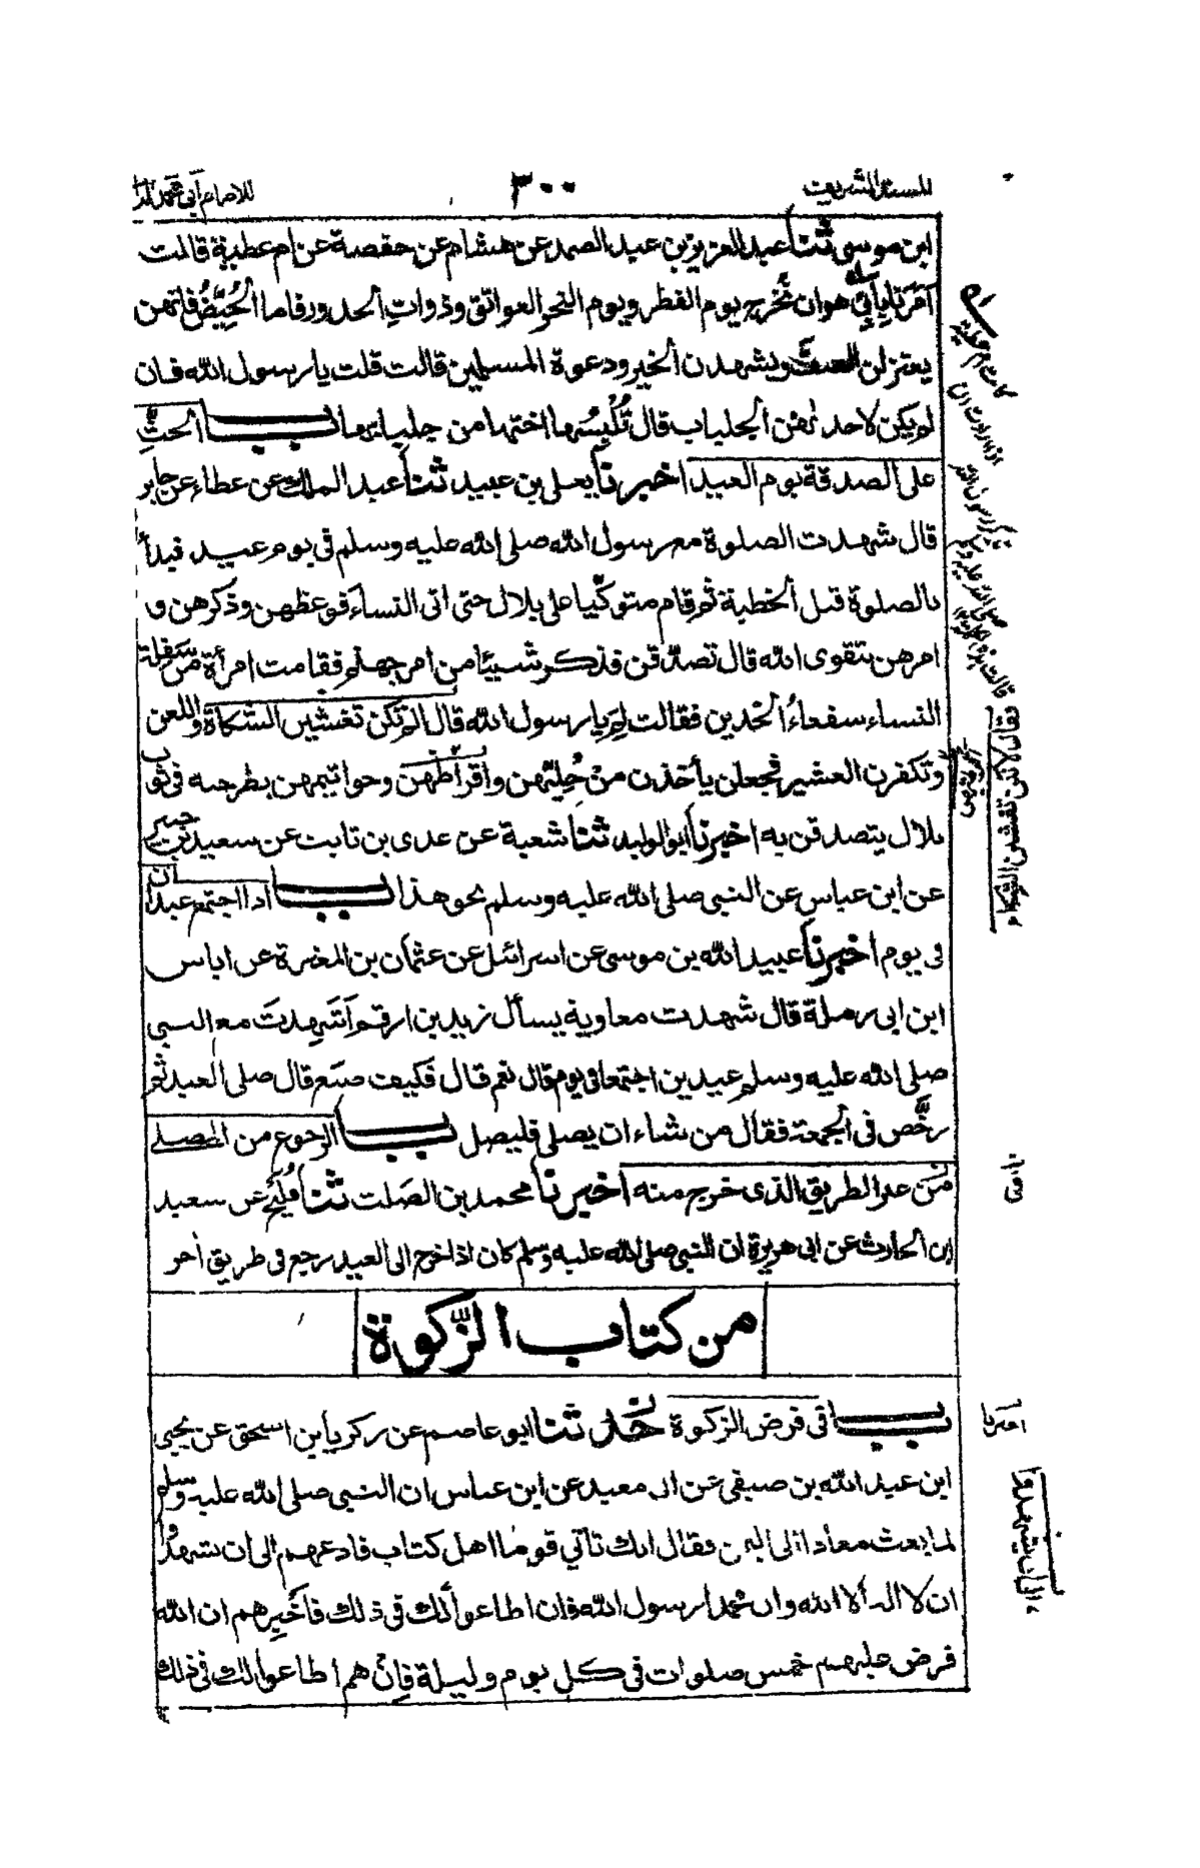 للمسند الشريف ٣٠٠ للامام أبي محمد
ابن موسى ثنا عبد العزيز بن عبد الصمد عن هشام عن حفصة عن ام عطية قالت
أمرنا بأبي هو ان نخرج يوم الفطر ويوم النحر العواتق وذوات الخدور فاما الحُيَّضُ فانهن
يعتزلن الصف ويشهدن الخير ودعوة المسلمين قالت قلت يا رسول الله فان
لم يكن لاحدٰهن الجلباب قال تُلْبِسُها اختها من جلبابها باب الحثّ
على الصدقة يوم العيد اخبرنا يعلى بن عبيد ثنا عبد الملك عن عطاء عن جابر
قال شهدت الصلوة مع رسول الله صلى الله عليه وسلم في يوم عيد فبدأ
بالصلوة قبل الخطبة ثم قام متوكّيا على بلال حتى اتى النساء فوعظهن وذكرهن و
امرهن بتقوى الله قال تصدّقن فذكر شيئا من امر جهنم فقامت امرأة من سفلة
النساء سفعاءُ الخدين فقالت لِمَ يا رسول الله قال لانكن تفشين الشكاة واللعن
وتكفرن العشير فجعلن يأخذن من حُلِيّهن واقراطهن وخواتيمهن يطرحنه في ثوب
بلال يتصدقن به اخبرنا ابو الوليد ثنا شعبة عن عدى بن ثابت عن سعيد بن جبير
عن ابن عباس عن النبى صلى الله عليه وسلم نحو هذا باب اذا اجتمع عيدان
فى يوم اخبرنا عبيد الله بن موسى عن اسرائيل عن عثمان بن المغيرة عن اياس
ابن ابى رملة قال شهدت معاوية يسأل زيد بن ارقم أشهدتَ مع النبى
صلى الله عليه وسلم عيدين اجتمعا فى يوم قال نعم قال فكيف صنع قال صلى العيد ثم
رخّص فى الجمعة فقال من شاء ان يصلى فليصل باب الرجوع من المصلے
من غير الطريق الذى خرج منه اخبرنا محمد بن الصلت ثنا فُلَيْح عن سعيد
ابن الحارث عن ابى هريرة ان النبى صلى الله عليه وسلم كان اذا خرج الى العيد رجع فى طريق اخر
من كتاب الزّكوة
باب فى فرض الزكوة حدّثنا ابو عاصم عن زكريا بن اسحق عن يحيى
ابن عبد الله بن صيفى عن ابى معبد عن ابن عباس ان النبى صلى الله عليه وسلم
لما بعث معاذا الى اليمن فقال انك تأتي قوما اهل كتاب فادعهم الى ان يشهدوا
ان لا اله الا الله وان محمدا رسول الله فان اطاعوا لك فى ذلك فأخبرهم ان الله
فرض عليهم خمس صلوات فى كل يوم وليلة فإن هم اطاعوا لك فى ذلك
فقال لانكن تفشين الشكاة
اخبرنا
الى ان يشهدوا